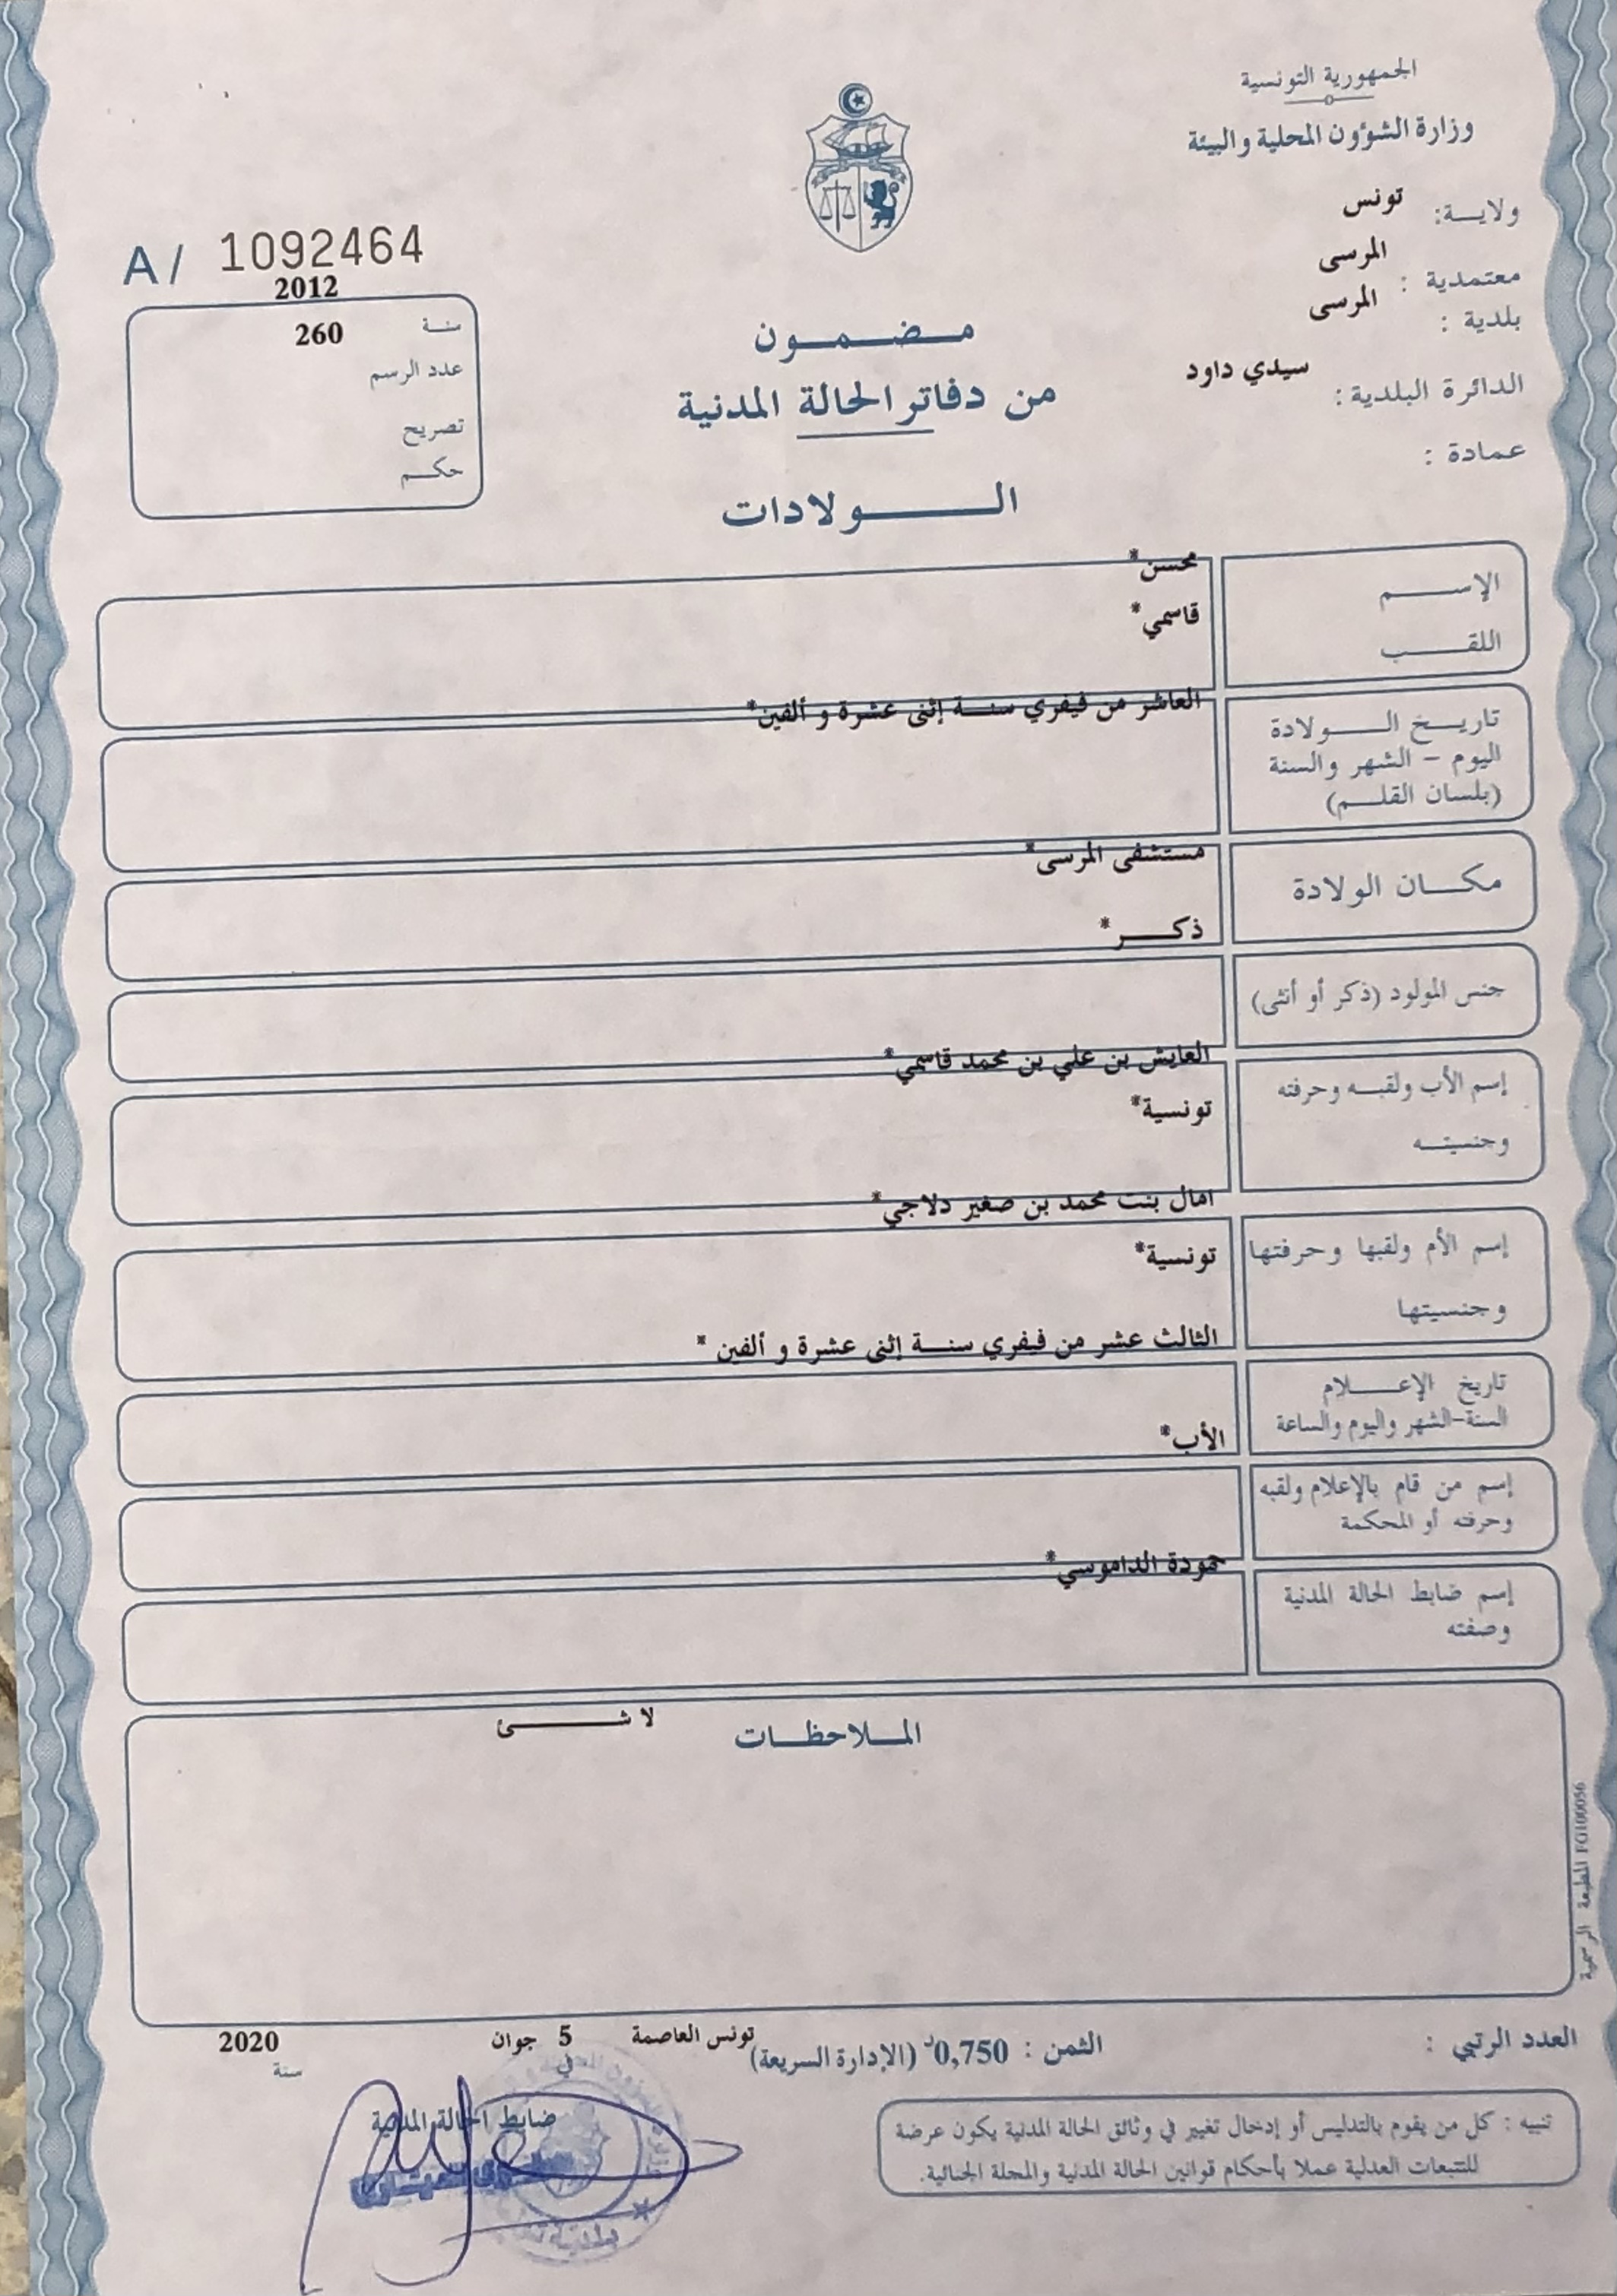 الجمهورية التونسية
وزارة الشؤون المحلية والبيئة
ولايــة: تونس
معتمدية : المرسى
بلدية : المرسى
الدائرة البلدية : سيدي داود
عمادة :
A / 1092464
2012
سنة 260
عدد الرسم
تصريح
حكم
مضمون
من دفاتر الحالة المدنية
الولادات
الإسم محسن*
اللقب قاسمي*
تاريخ الولادة العاشر من فيفري سنة إثنى عشرة و ألفين*
اليوم – الشهر والسنة
(بلسان القلم)
مكان الولادة مستشفى المرسى*
ذكر*
جنس المولود (ذكر أو أنثى)
إسم الأب ولقبه وحرفته العايش بن علي بن محمد قاسمي*
وجنسيته تونسية*
إسم الأم ولقبها وحرفتها امال بنت محمد بن صغير دلاجي*
وجنسيتها تونسية*
الثالث عشر من فيفري سنة إثنى عشرة و ألفين *
تاريخ الإعلام
السنة-الشهر واليوم والساعة
الأب*
إسم من قام بالإعلام ولقبه
وحرفته أو المحكمة
حمودة الداموسي*
إسم ضابط الحالة المدنية
وصفته
الملاحظات لا شئ
المطبعة الرسمية FG100056
العدد الرتبي :
الثمن : 0,750د (الإدارة السريعة)
تونس العاصمة في 5 جوان سنة 2020
ضابط الحالة المدنية
تنبيه : كل من يقوم بالتدليس أو إدخال تغيير في وثائق الحالة المدنية يكون عرضة
للتتبعات العدلية عملا بأحكام قوانين الحالة المدنية والمجلة الجنائية.